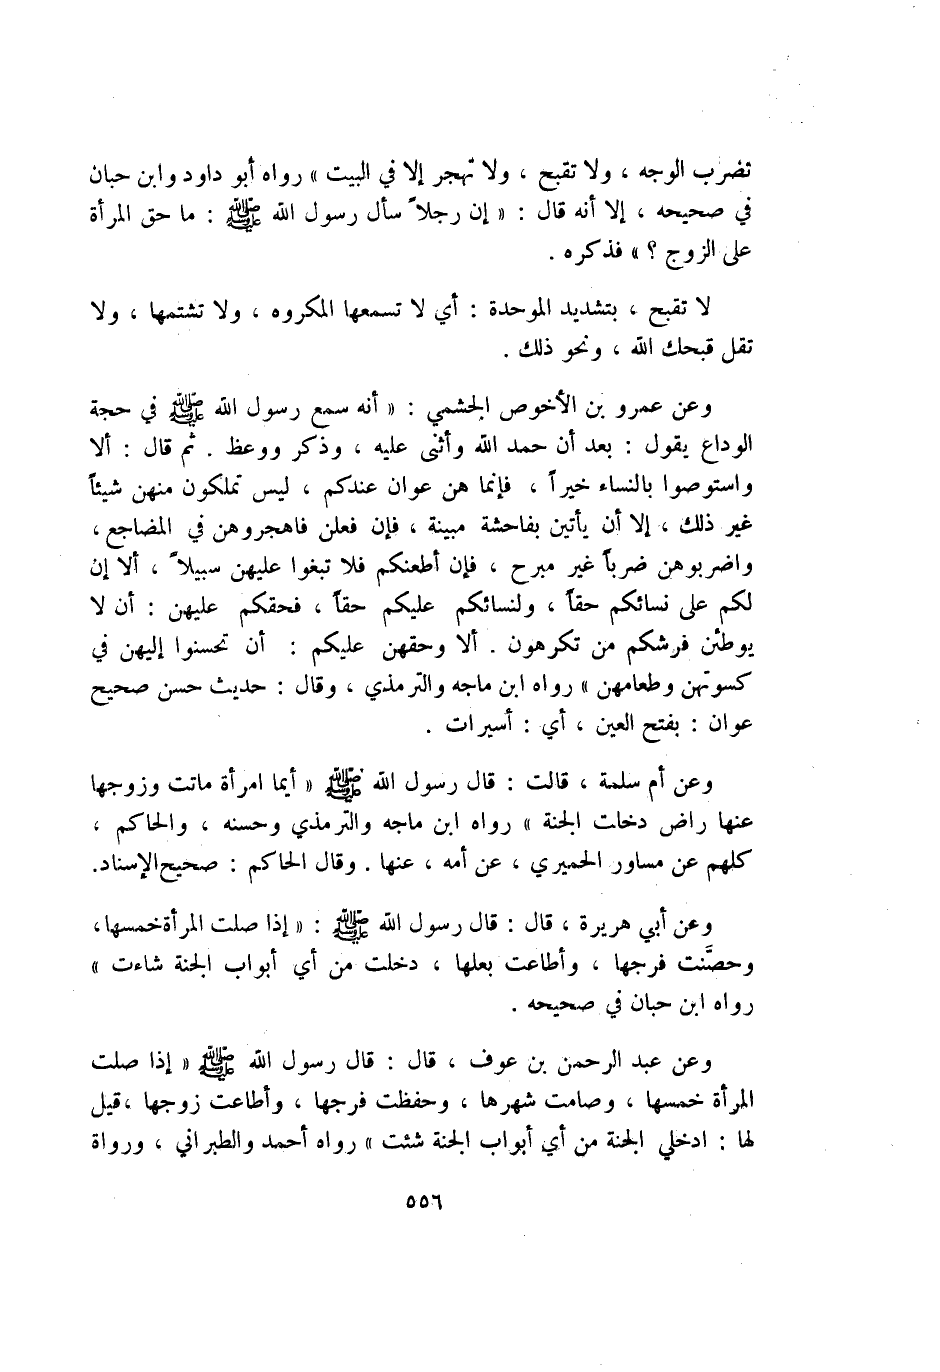 تضرب الوجه ، ولا تقبح ، ولا تهجر إلا في البيت » رواه أبو داود وابن حبان
في صحيحه ، إلا أنه قال : « إن رجلاً سأل رسول الله ﷺ : ما حق المرأة
على الزوج ؟ » فذكره .
لا تقبح ، بتشديد الموحدة : أي لا تسمعها المكروه ، ولا تشتمها ، ولا
تقل قبحك الله ، ونحو ذلك .
وعن عمرو بن الأخوص الجشمي : « أنه سمع رسول الله ﷺ في حجة
الوداع يقول : بعد أن حمد الله وأثنى عليه ، وذكر ووعظ . ثم قال : ألا
واستوصوا بالنساء خيراً ، فإنما هن عوان عندكم ، ليس تملكون منهن شيئاً
غير ذلك ، إلا أن يأتين بفاحشة مبينة ، فإن فعلن فاهجروهن في المضاجع ،
واضربوهن ضرباً غير مبرح ، فإن أطعنكم فلا تبغوا عليهن سبيلاً ، ألا إن
لكم على نسائكم حقاً ، ولنسائكم عليكم حقاً ، فحقكم عليهن : أن لا
يوطئن فرشكم من تكرهون . ألا وحقهن عليكم : أن تحسنوا إليهن في
كسوتهن وطعامهن » رواه ابن ماجه والترمذي ، وقال : حديث حسن صحيح
عوان : بفتح العين ، أي : أسيرات .
وعن أم سلمة ، قالت : قال رسول الله ﷺ « أيما امرأة ماتت وزوجها
عنها راض دخلت الجنة » رواه ابن ماجه والترمذي وحسنه ، والحاكم ،
كلهم عن مساور الحميري ، عن أمه ، عنها . وقال الحاكم : صحيح الإسناد.
وعن أبي هريرة ، قال : قال رسول الله ﷺ : « إذا صلت المرأة خمسها ،
وحصَّنت فرجها ، وأطاعت بعلها ، دخلت من أي أبواب الجنة شاءت »
رواه ابن حبان في صحيحه .
وعن عبد الرحمن بن عوف ، قال : قال رسول الله ﷺ « إذا صلت
المرأة خمسها ، وصامت شهرها ، وحفظت فرجها ، وأطاعت زوجها ،قيل
لها : ادخلي الجنة من أي أبواب الجنة شئت » رواه أحمد والطبراني ، ورواة
٥٥٦